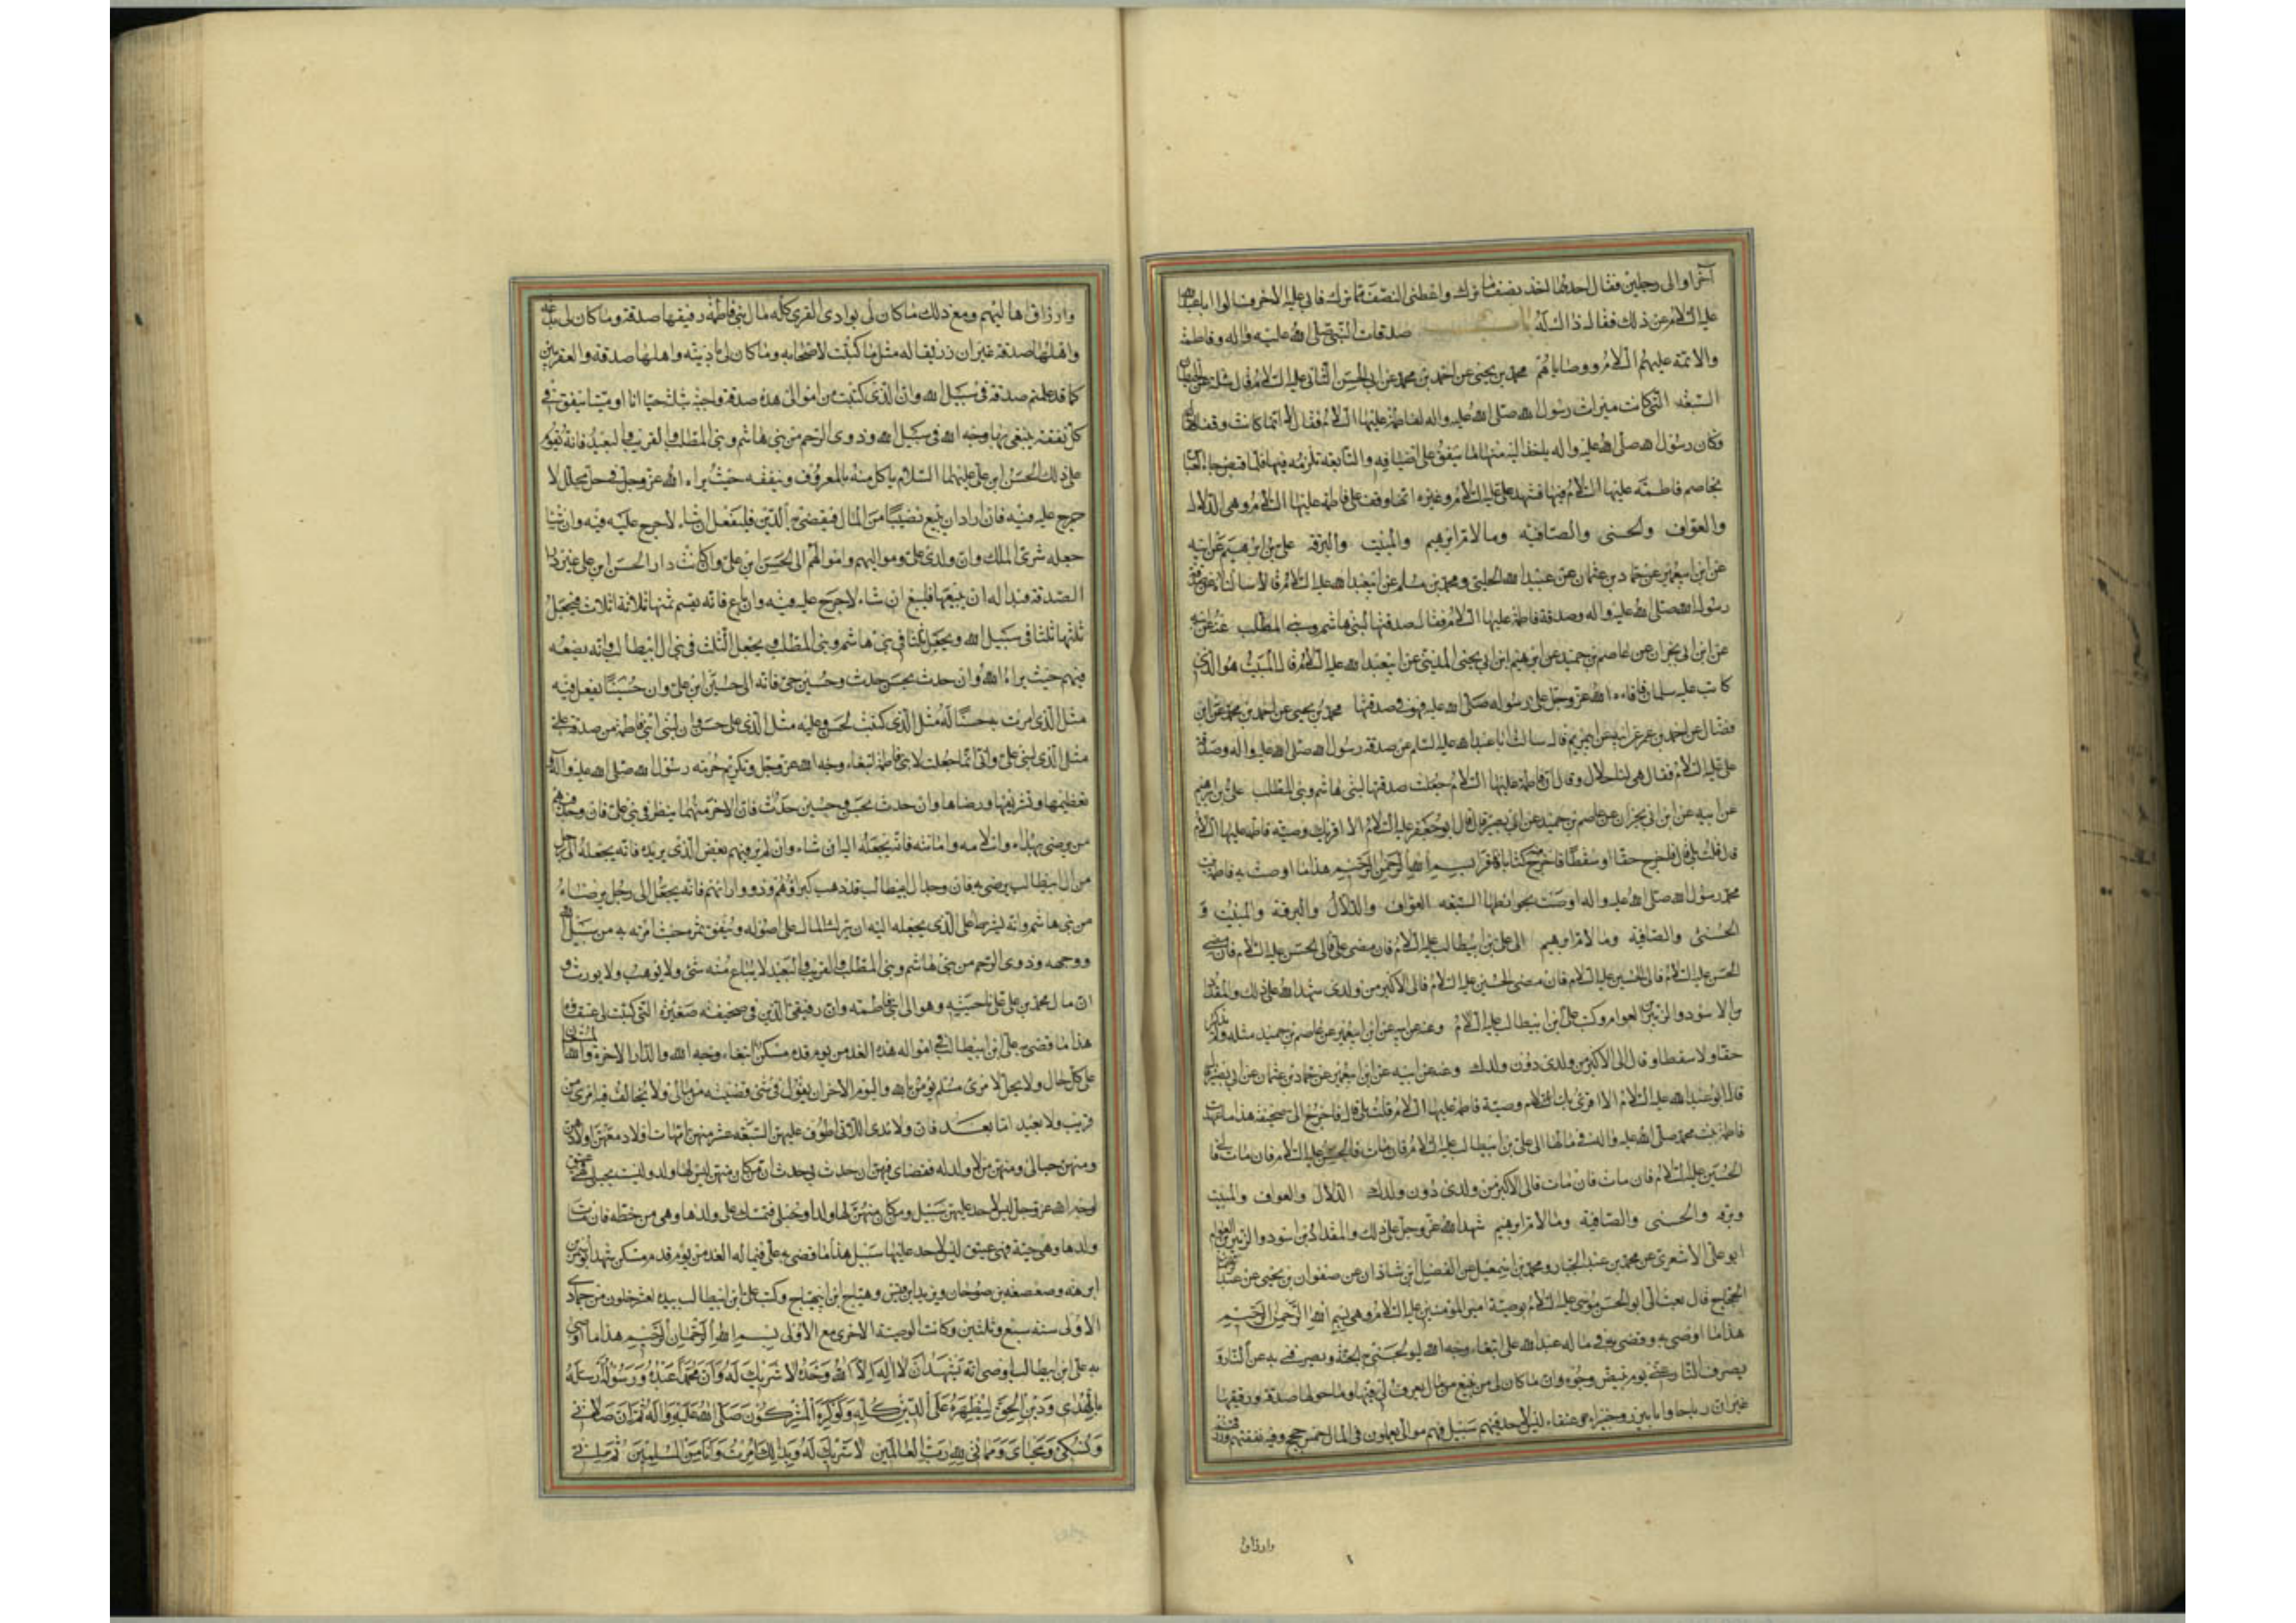 آخر اوالى رجلين فقال احدهما اخذ بضف ما ترك واعطنى النصف مما ترك فابى عليه الاخر فسالوا اباعبدالله
عليه السلام عن ذلك فقال ذاك له باب صدقات النبى صلى الله عليه واله وفاطمة
والائمة عليهم السلام ووصاياهم محمد بن يحيى عن احمد بن محمد عن ابى الحسن الثانى عليه السلام قال سئلته عن الحيطان
السبعه التى كانت ميراث رسول الله صلى الله عليه واله لفاطمة عليها السلام فقال لا انما كانت وقفا
وكان رسول الله صلى الله عليه واله ياخذ اليه منها ما ينفق على اضيافه والتابعه تلزمه فيها فلما قبض جاء العباس
يخاصم فاطمة عليها السلام فيها فشهد على عليه السلام وغيره انها وقف على فاطمة عليها السلام وهى الدلال
والعواف والحسنى والصافيه ومالام ابرهيم والمبيت والبرقه على بن ابرهيم عن ابيه
عن ابن ابيعمير عن حماد بن عثمان عن عبيد الله الحلبى ومحمد بن مسلم عن ابيعبد الله عليه السلام قالا سالناه عن صدقة
رسول الله صلى الله عليه واله وصدقة فاطمة عليها السلام فقال صدقتها لبنى هاشم وبنى المطلب عنه عن ابيه
عن ابن ابى نجران عن عاصم بن حميد عن ابرهيم ابن ابى يحيى المدينى عن ابيعبد الله عليه السلام قال المبيت هو الذى
كاتب عليه سلمان فافاءه الله عز وجل على رسوله صلى الله عليه فهو فى صدقتها محمد بن يحيى عن احمد بن محمد عن ابن
فضال عن احمد بن عمر عن ابيه عن ابى مريم قال سالت ابا عبد الله عليه السلم عن صدقة رسول الله صلى الله عليه واله وصدقة
على عليه السلام فقال هى لنا حلال وقال ان فاطمة عليها السلام جعلت صدقتها لبنى هاشم وبنى المطلب على بن ابرهيم
عن ابيه عن ابن ابى نجران عن عاصم بن حميد عن ابى بصير قال قال ابو جعفر عليه السلام الا اقرئك وصية فاطمة عليها السلام
قال قلت بلى قال فاخرج حقا او سفطا فاخرج منه كتابا فقرا بسم الله الرحمن الرحيم هذا ما اوصت به فاطمة بنت
محمد رسول الله صلى الله عليه واله اوصت بحوائطها السبعه العواف والدلال والبرقة والمبيت و
الحسنى والصافية ومالام ابرهيم الى على بن ابيطالب عليه السلام فان مضى على فالى الحسن عليه السلام فان مضى
الحسن عليه السلام فالى الحسين عليه السلام فان مضى الحسين عليه السلام فالى الاكبر من ولدى شهد الله على ذلك والمقداد
بن الاسود والزبير بن العوام وكتب على ابن ابيطالب عليه السلام وعنه عن ابيه عن ابن ابيعمير عن عاصم بن حميد مثله ولم يذكر
حقا ولا سفطا وقال الى الاكبر من ولدى دون ولدك وعنه عن ابيه عن ابن ابيعمير عن حماد بن عثمان عن ابى بصير
قال ابو عبد الله عليه السلام الا اقرئك وصية فاطمة عليها السلام قلت بلى قال فاخرج الى صحيفة هذا ما عهدت
فاطمة بنت محمد صلى الله عليه واله فى مالها الى على بن ابيطالب عليه السلام فان مات فالى الحسن عليه السلام فان مات فالى
الحسين عليه السلام فان مات فان مات فالى الاكبر من ولدى دون ولدك الدلال والعواف والمبيت
وبرقه والحسنى والصافية ومالام ابرهيم شهد الله عز وجل على ذلك والمقداد بن اسود والزبير بن العوام
ابو على الاشعرى عن محمد بن عبد الجبار ومحمد بن اسمعيل عن الفضل ابن شاذان عن صفوان بن يحيى عن عبد الرحمن
الحجاج قال بعث الى ابو الحسن موسى عليه السلام بوصية امير المؤمنين عليه السلام وهى بسم الله الرحمن الرحيم
هذا ما اوصى به وقضى به فى ماله عبد الله على ابتغاء وجه الله ليولجنى به الجنة ويصرفنى به عن النار و
يصرف النار عنى يوم تبيض وجوه وان ما كان لى من ينبع من مال يعرف لى فيها وما حولها صدقة ورقيقها
غير ان رباحا وابا بيزر وجبيراء عتقاء ليس لاحد فيهم سبيل فهم موالى يعملون فى المال خمس حجج وفيه نفقتهم ورزقهم
وارزاق
وارزاق اهاليهم ومع ذلك ما كان لى بوادى القرى كله مال بنى فاطمة ورقيقها صدقة وما كان لى
واهلها صدقة غير ان زريقا له مثل ما كتبت لاصحابه وما كان لى باذينه واهلها صدقة والعقرين
كما قد علمتم صدقة فى سبيل الله وان الذى كتبت من اموالى هذه صدقة واجبة بتلة حيا انا او ميتا ينفق فى
كل نفقة ينبغى بها وجه الله فى سبيل الله وذوى الرحم من بنى هاشم وبنى المطلب والقريب والبعيد فانه يقوم
على ذلك الحسن ابن على عليهما السلام ياكل منه بالمعروف وينفقه حيث يراه الله عز وجل فى حل محلل لا
حرج عليه فيه فان اراد ان يبيع نصيبا من المال فيقضى به الدين فليفعل ان شاء لا حرج عليه فيه وان شاء
جعله شرى الملك وان ولدى على ومواليهم واموالهم الى الحسن ابن على وان كانت دار الحسن ابن على غير دار
الصدقة فبدا له ان يبيعها فليبع ان شاء لا حرج عليه فيه وان باع فانه يقسم ثمنها ثلاثة اثلاث فيجعل
ثلثها ثلثا فى سبيل الله ويجعل ثلثا فى بنى هاشم وبنى المطلب ويجعل الثلث فى بنى ال ابيطالب وانه يضعه
فيهم حيث يراه الله وان حدث بحسن حدث وحسين حى فانه الى حسين ابن على وان حسينا يفعل فيه
مثل الذى امرت به حسنا له مثل الذى كتبت لحسن وعليه مثل الذى على حسن وان لبنى ابنى فاطمة من صدقة على
مثل الذى لبنى على وانى انما جعلت لابنى فاطمة ابتغاء وجه الله عز وجل وتكريم حرمة رسول الله صلى الله عليه واله و
تعظيمها وتشريفها ورضاها وان حدث بحسن وحسين حدث فان الاخر منهما ينظر فى بنى على فان وجد فيهم
من يرضى بهداه واسلامه وامانته فانه يجعله اليه ان شاء وان لم ير فيهم بعض الذى يريده فانه يجعله الى رجل
من ال ابيطالب يرضى به فان وجد ال ابيطالب قد ذهب كبراؤهم وذووا رائهم فانه يجعله الى رجل يرضاه
من بنى هاشم وانه يشرط على الذى يجعله اليه ان يترك المال على اصوله وينفق ثمره حيث امرته به من سبيل الله
ووجهه وذوى الرحم من بنى هاشم وبنى المطلب والقريب والبعيد لا يباع منه شئ ولا يوهب ولا يورث و
ان مال محمد بن على على ناحيته وهو الى ابنى فاطمه وان رقيقى الذين فى صحيفة صغيرة التى كتبت لى عتقاء
هذا ما قضى به على ابن ابيطالب فى امواله هذه الغد من يوم قدم مسكن ابتغاء وجه الله والدار الاخرة والله المستعان
على كل حال ولا يحل لامرئ مسلم يؤمن بالله واليوم الاخر ان يقول فى شئ قضيته من مالى ولا يخالف فيه امرى من
قريب ولا بعيد اما بعد فان ولائدى اللاتى اطوف عليهن السبعه عشر منهن امهات اولاد معهن اولادهن
ومنهن حبالى ومنهن من لا ولد له فقضاى فيهن ان حدث بى حدث ان من كان منهن ليس لها ولد وليست بحبلى فهى عتيق
لوجه الله عز وجل ليس لاحد عليهن سبيل ومن كان منهن لها ولد او حبلى فتمسك على ولدها وهى من حظه فان مات
ولدها وهى حية فهى عتيق ليس لاحد عليها سبيل هذا ما قضى به على فيما له الغد من يوم قدم مسكن شهد ابو سمر بن
ابرهه وصعصعه بن صوحان ويزيد ابن قيس وهياج ابن ابيهياج وكتب على ابن ابيطالب بيده لعشر خلون من جمادى
الاولى سنة سبع وثلثين وكانت الوصية الاخرى مع الاولى بسم الله الرحمان الرحيم هذا ما اوصى
به على ابن ابيطالب اوصى انه يشهد ان لا اله الا الله وحده لا شريك له وان محمدا عبده ورسوله ارسله
بالهدى ودين الحق ليظهره على الدين كله ولو كره المشركون صلى الله عليه واله ثم ان صلاتى
ونسكى ومحياى ومماتى لله رب العالمين لا شريك له وبذلك امرت وانا من المسلمين ثم انى